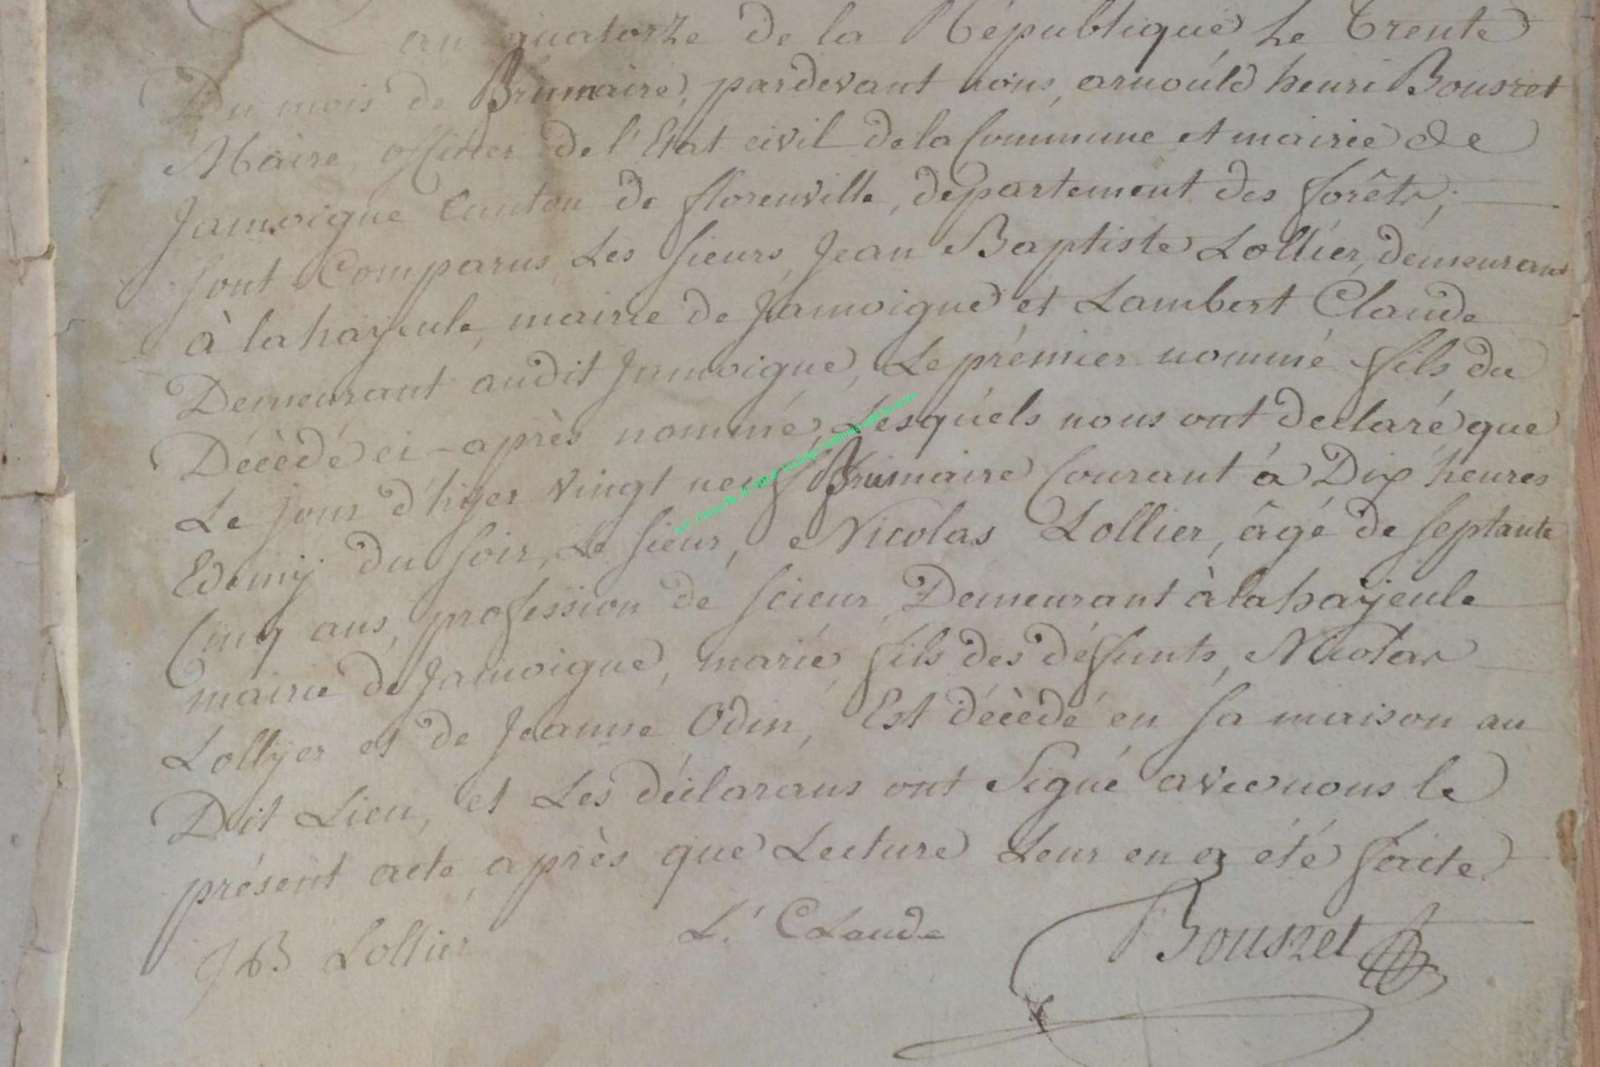 an quatorze de la République Le trente
Du mois de Brumaire, pardevant nous, arnould henri Bouszet
Maire, officier de l'Etat civil de la Commune et mairie de
Jamoigne Canton de florenville, département des forêts;
sont Comparus, Les sieurs, Jean Baptiste Lollier, demeurans
à lahayeule, mairie de Jamoigne et Lambert Claude
Demeurant audit Jamoigne, Le prémier nommé fils du
Décèdé ci-après nommé, Lesquéls nous ont declaré que
Le jour d'hyer vingt neuf Brumaire Courant à Dix heures
Edemÿ du soir, Le sieur, Nicolas Lollier, âgé de septante
Cinq ans, profession de scieur, Demeurant à lahaÿeule
mairie de Jamoigne, marié, fils des défunts, Nicolas
Lollÿer et de Jeanne Odin, Est décèdé en sa maison au
Dit Lieu, et Les déclarans ont Signé avec nous le
présent acte, après que Lecture Leur en a été faite.
JB Lollier L. CLaude Bouszet